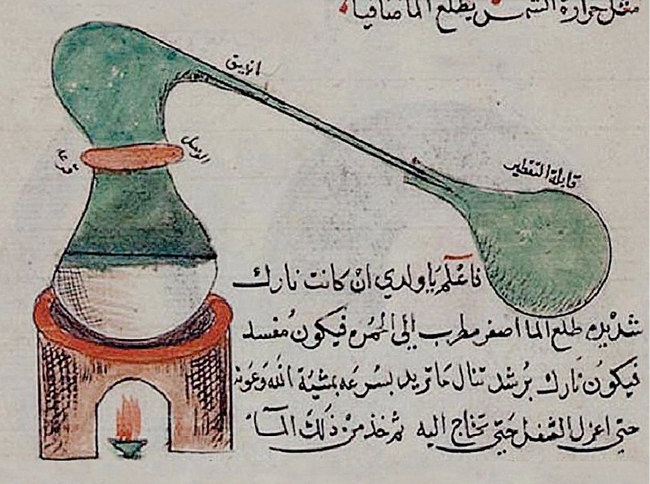 مثل حرارة الشمس يطلع الما صافيا
انبيق
الوصل
قرعة
قابلة التقطير
فاعلم يا ولدي ان كانت نارك
شديده طلع الما اصفر مطرب الي الحمره فيكون مفسد
فيكون نارك برشد تنال ما تريد بسرعه بمشيئة الله وعونه
حتي اعزل الثفل حتي تحتاج اليه ثم خذ من ذلك المآء